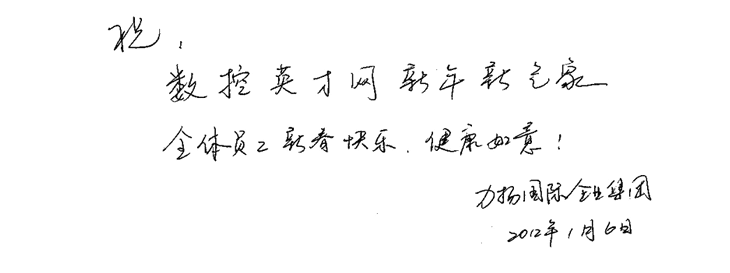 祝:
数控英才网新年新气象
全体员工新春快乐、健康如意!
力扬国际企业集团
2012年1月6日